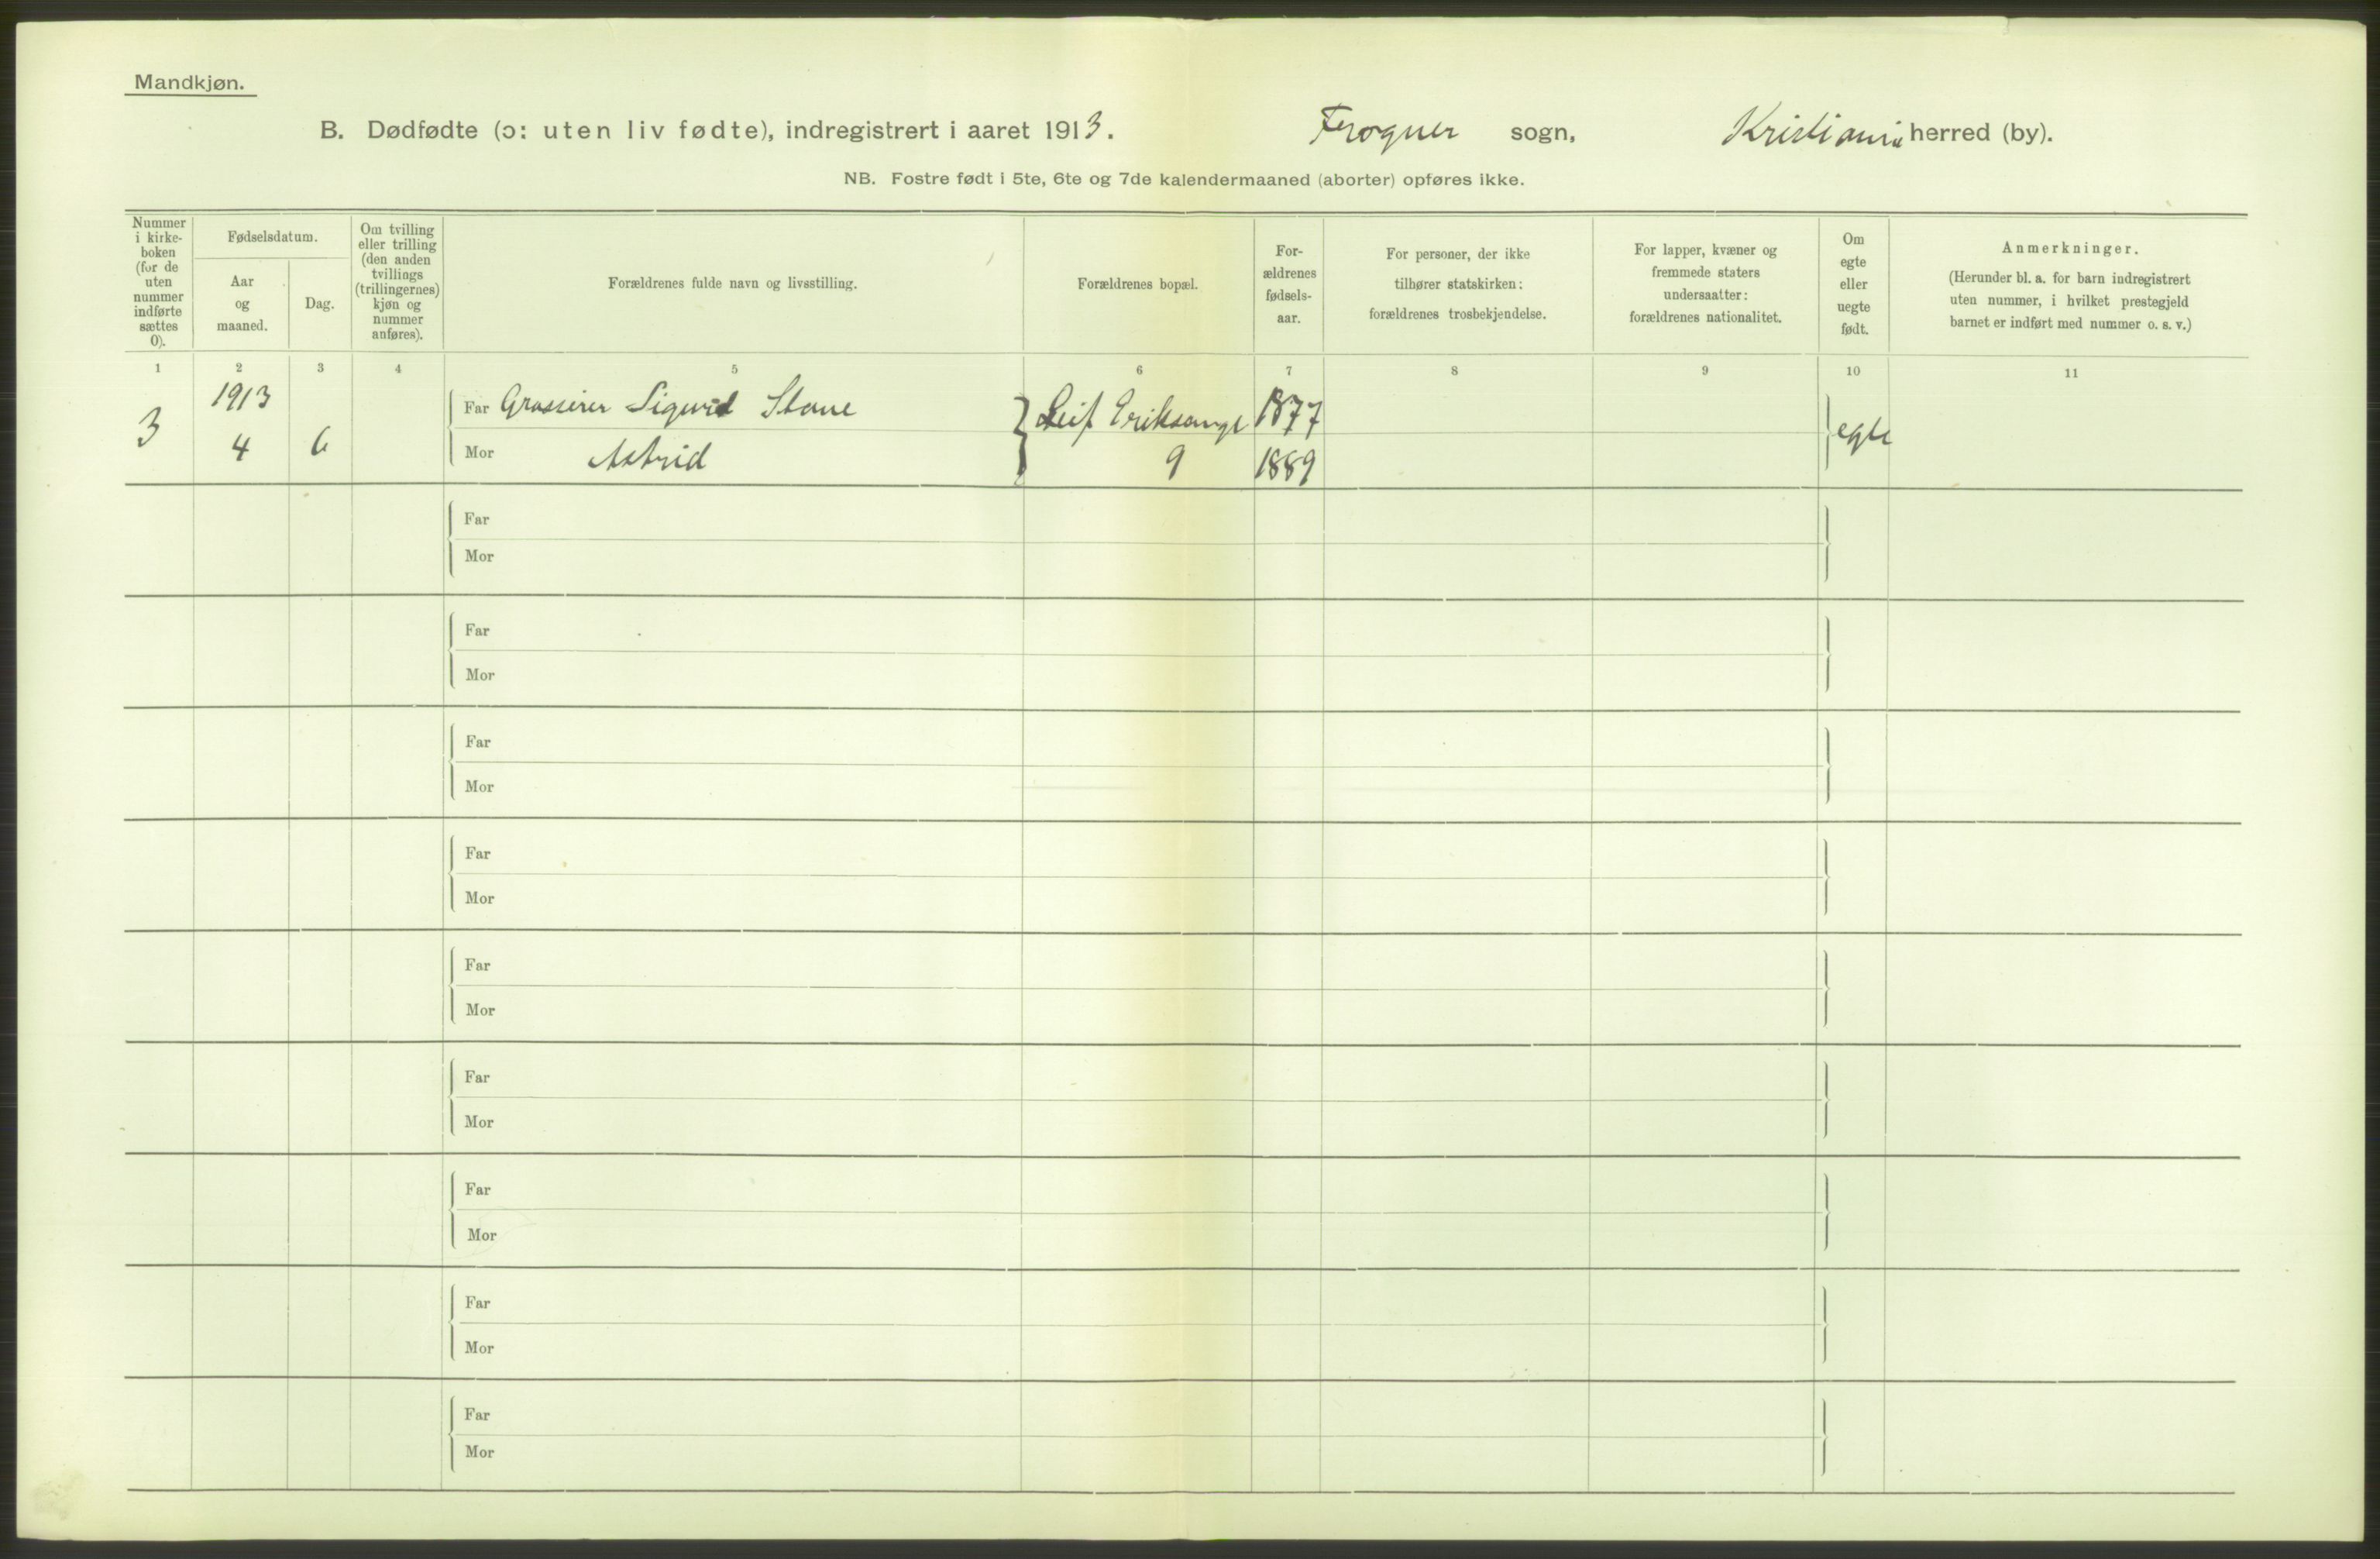 Mandkjøn.
B. Dødfødte (ɔ: uten liv fødte), indregistrert i aaret 1913. Frogner sogn, Kristiania herred (by).
NB. Fostre født i 5te, 6te og 7de kalendermaaned (aborter) opføres ikke.
Nummer
i kirke-
boken
(for de
uten
nummer
indførte
sættes
0).
Fødselsdatum.
Aar
og
maaned.
Dag.
Om tvilling
eller trilling
(den anden
tvillings
(trillingernes)
kjøn og
nummer
anføres).
Forældrenes fulde navn og livsstilling.
Forældrenes bopæl.
For-
ældrenes
fødsels-
aar.
For personer, der ikke
tilhører statskirken:
forældrenes trosbekjendelse.
For lapper, kvæner og
fremmede staters
undersaatter:
forældrenes nationalitet.
Om
egte
eller
uegte
født.
Anmerkninger.
(Herunder bl. a. for barn indregistrert
uten nummer, i hvilket prestegjeld
barnet er indført med nummer o. s. v.)
1 2 3 4 5 6 7 8 9 10 11
1913 Far Grosserer Sigurd Leif Eriksonsgt 1877
3 4 6 Mor Astrid 9 1889 egte
Far
Mor
Far
Mor
Far
Mor
Far
Mor
Far
Mor
Far
Mor
Far
Mor
Far
Mor
Far
Mor